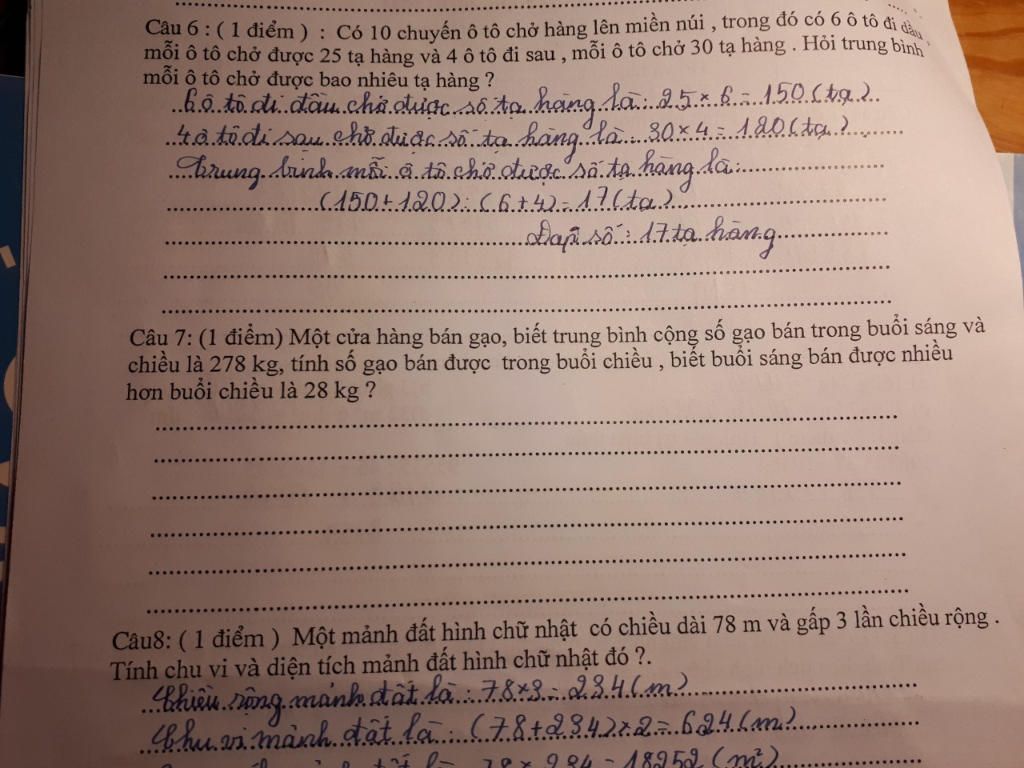 Câu 6 : ( 1 điểm ) : Có 10 chuyến ô tô chở hàng lên miền núi , trong đó có 6 ô tô đi đầu ,
mỗi ô tô chở được 25 tạ hàng và 4 ô tô đi sau , mỗi ô tô chở 30 tạ hàng . Hỏi trung bình
mỗi ô tô chở được bao nhiêu tạ hàng ?
6 ô tô đi đầu chở được số tạ hàng là: 25 × 6 = 150 (tạ)
4 ô tô đi sau chở được số tạ hàng là: 30 × 4 = 120 (tạ)
Trung bình mỗi ô tô chở được số tạ hàng là:
(150 + 120) : (6 + 4) = 17 (tạ)
Đáp số : 17 tạ hàng
Câu 7: (1 điểm) Một cửa hàng bán gạo, biết trung bình cộng số gạo bán trong buổi sáng và
chiều là 278 kg, tính số gạo bán được trong buổi chiều , biết buổi sáng bán được nhiều
hơn buổi chiều là 28 kg ?
Câu8: ( 1 điểm ) Một mảnh đất hình chữ nhật có chiều dài 78 m và gấp 3 lần chiều rộng .
Tính chu vi và diện tích mảnh đất hình chữ nhật đó ?.
Chiều rộng mảnh đất là : 78 × 3 = 234 (m)
Chu vi mảnh đất là : (78 + 234) × 2 = 624 (m)
mảnh đất là : 78 × 234 = 18252 (m²)